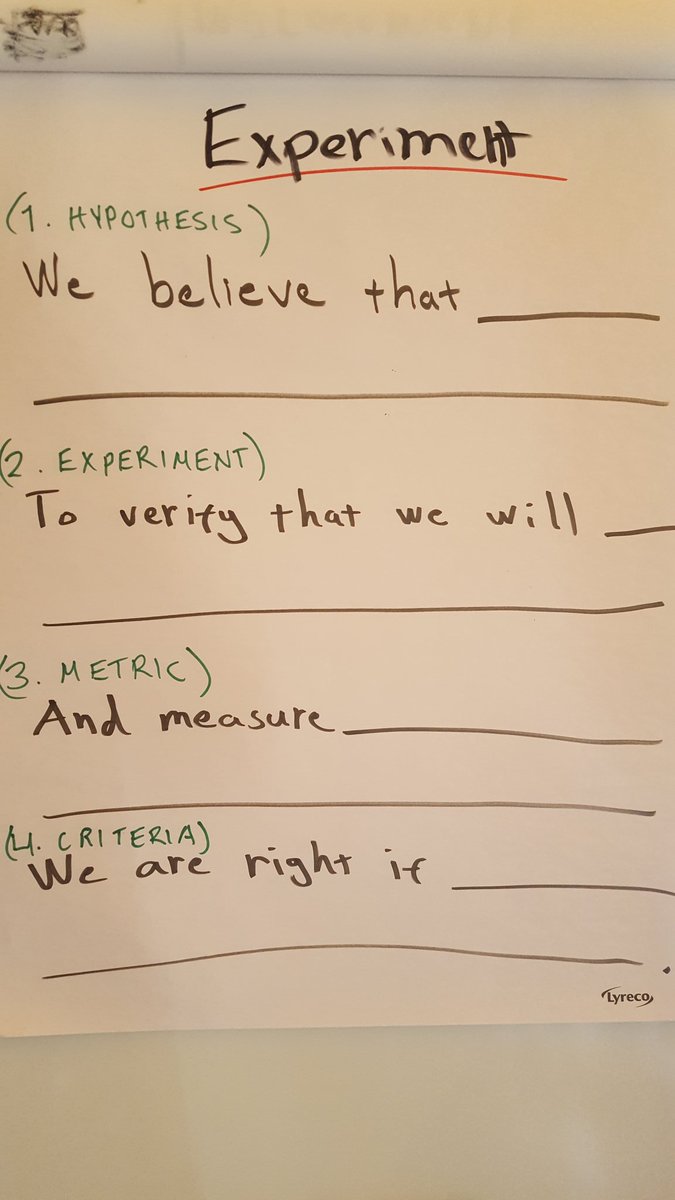 Experiment
(1. HYPOTHESIS)
We believe that
(2. EXPERIMENT)
To verify that we will
(3. METRIC)
And measure
(4. CRITERIA)
We are right if
.
Lyreco